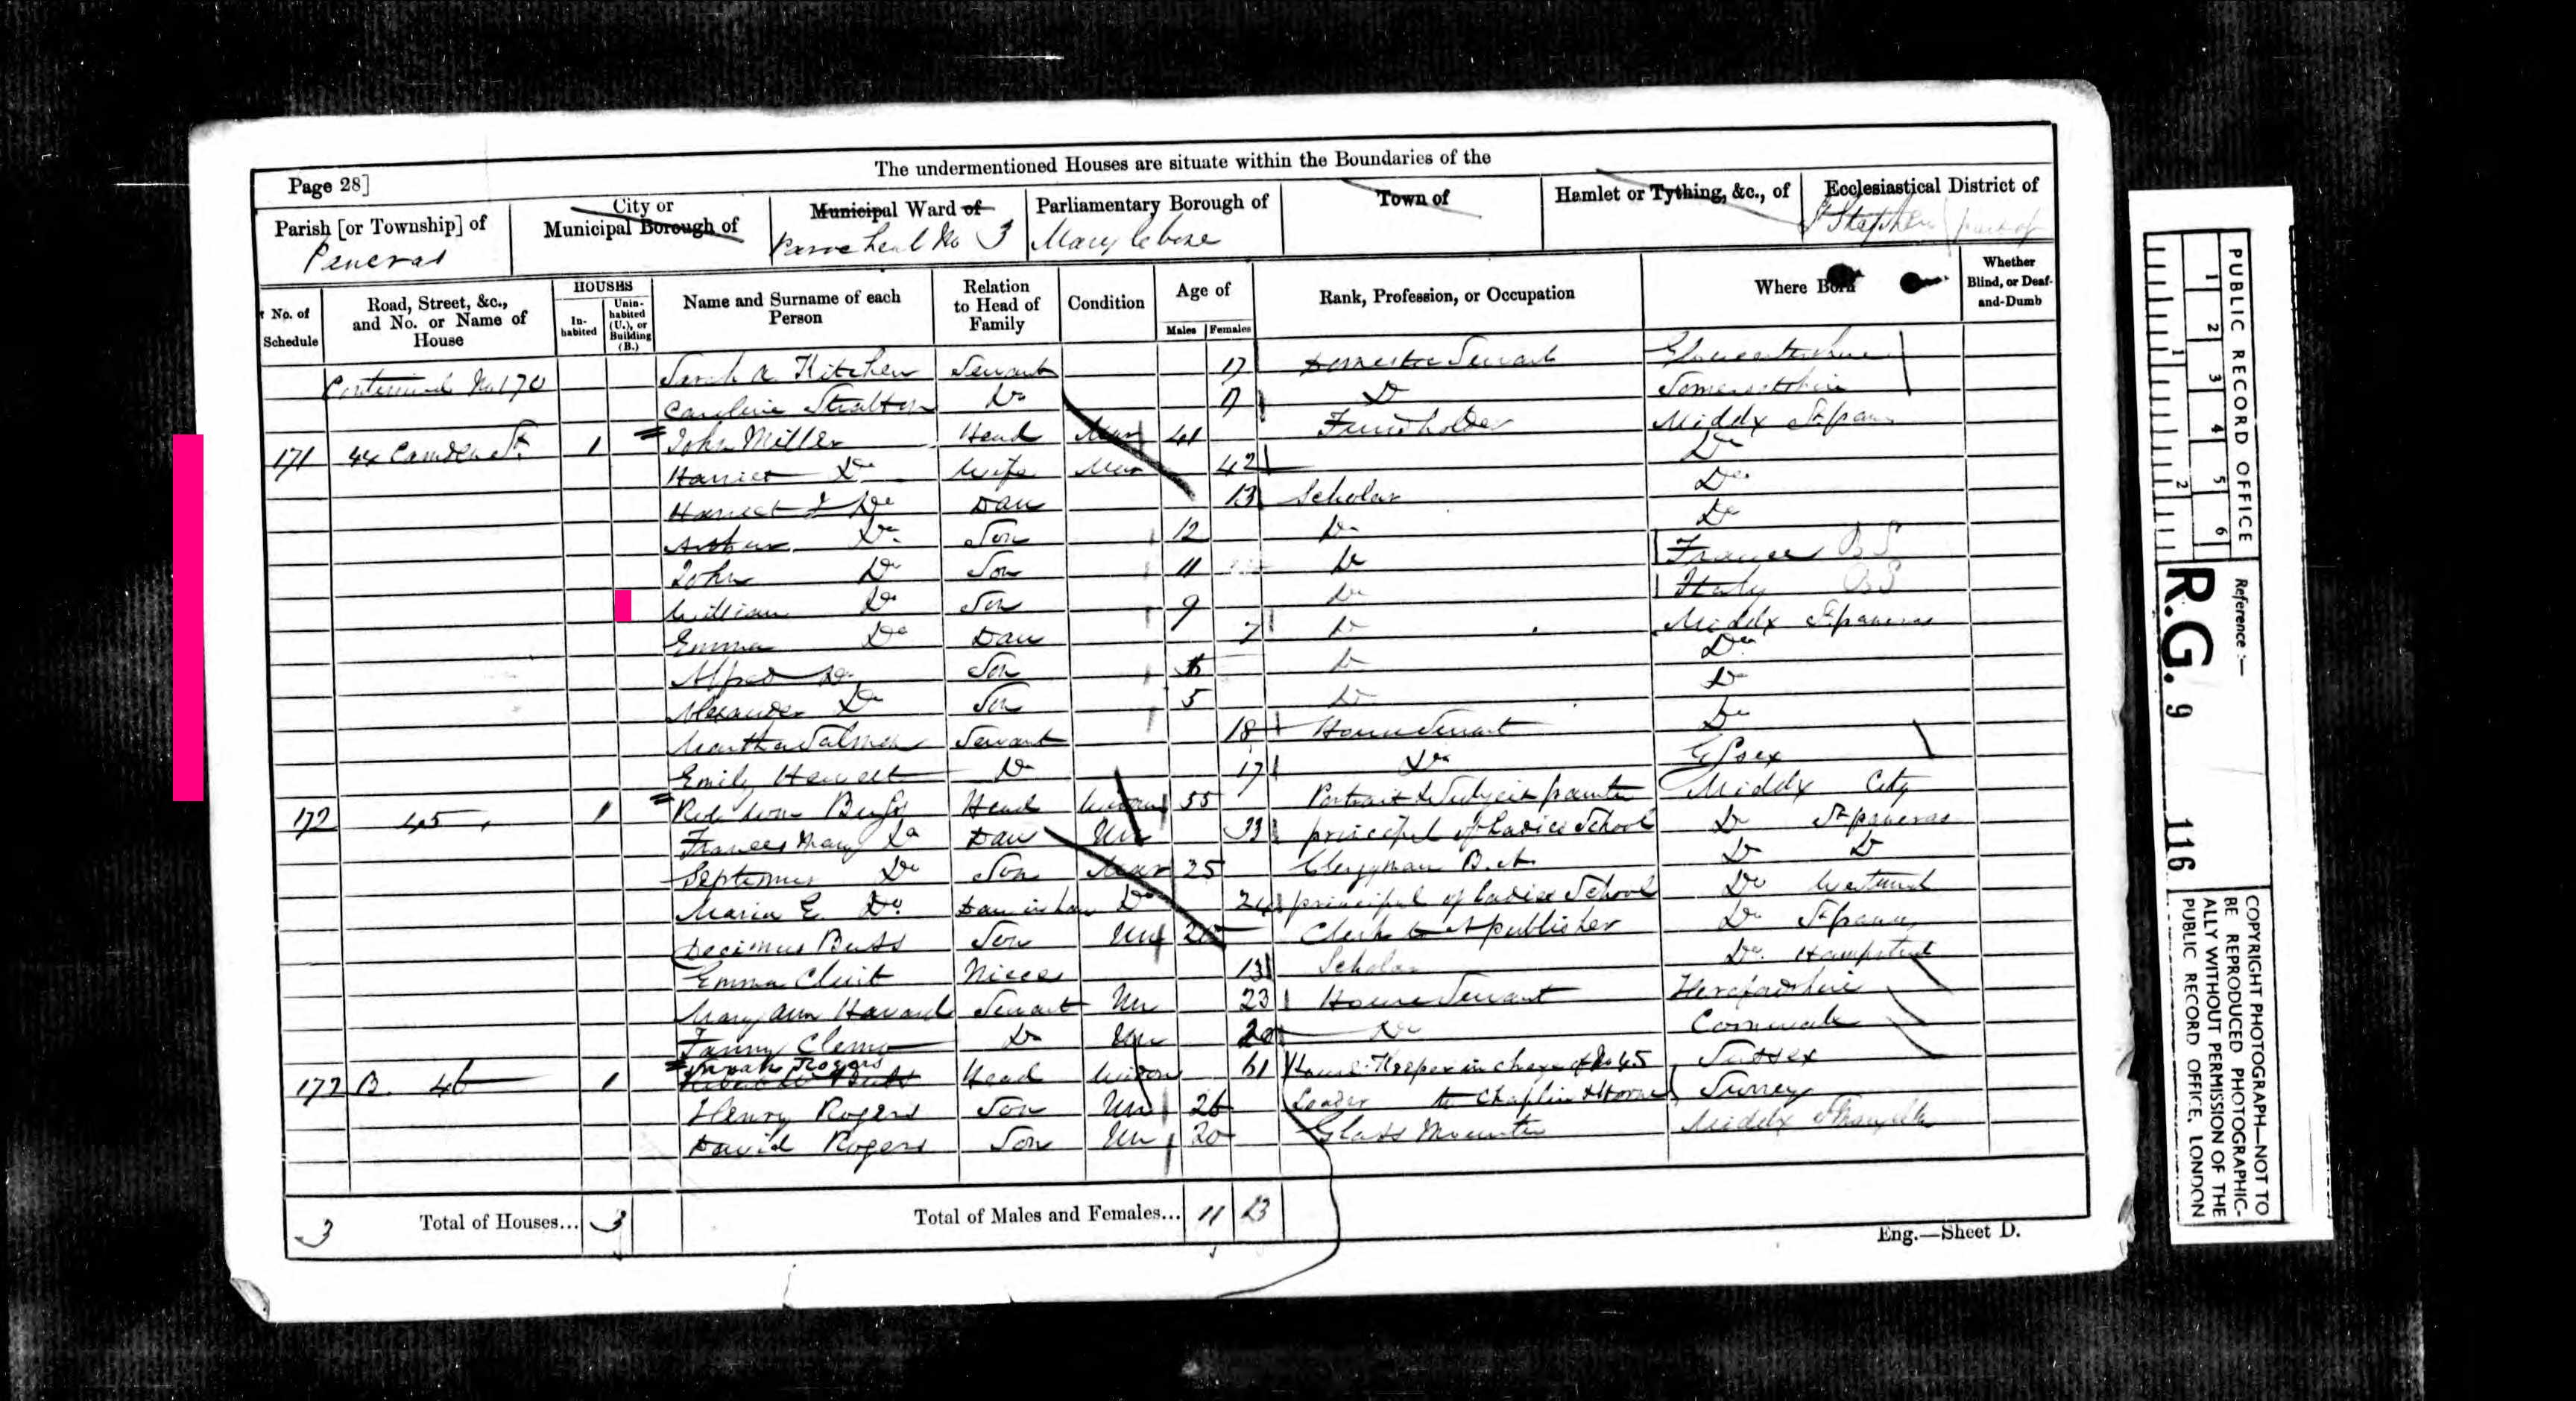 The undermentioned Houses are situate within the Boundaries of the
Page 28]
Parish [or Township] of
Pancras
City or Municipal Borough of
Municipal Ward of
No 3
Parliamentary Borough of
Marylebone
Town of
Hamlet or Tything, &c., of
Ecclesiastical District of
St Stephen part of
No. of Schedule
Road, Street, &c., and No. or Name of House
HOUSES
In-habited
Unin-habited (U.), or Building (B.)
Name and Surname of each Person
Relation to Head of Family
Condition
Age of
Males
Females
Rank, Profession, or Occupation
Where Born
Whether Blind, or Deaf-and-Dumb
Continued No 170 Sarah A Kitchen Servant 17 Domestic Servant Gloucestershire
Caroline Do 17 Do Somersetshire
171 44 Camden St 1 John Miller Head Mar 41 Fundholder Middx St pan
Harriet Do Wife Mar 42 Do
Harriet Do Dau 13 Scholar Do
Arthur Do Son 12 Do Do
John Do Son 11 Do France BS
William Do Son 9 Do Italy BS
Emma Do Dau 7 Do Middx St pancras
Alfred Do Son Do Do
Alexander Do Son 5 Do Do
Martha Servant 18 House Servant Do
Emily Do 17 Do Essex
172 45 1 Robt Wm Buss Head Widower 55 Portrait & Subject painter Middx City
Frances Mary Do Dau Un 33 principal of Ladies School Do St pancras
Septimus Do Son Mar 25 Clergyman B.A. Do Do
Maria E Do Dau in Law Do 24 principal of Ladies School Do
Decimus Buss Son Un Clerk to A publisher Do St pancras
Emma Niece 13 Scholar Do Hampstead
Mary Ann Servant Un 23 House Servant Herefordshire
Fanny Clemo Do Un 20 Do Cornwall
172 B. 46 1 Rogers Head Widow 61 House Keeper in charge of No 45 Sussex
Henry Rogers Son Un 26 to Chaplin & Horne Surrey
David Rogers Son Un 20 Glass Middx
3 Total of Houses... 3
Total of Males and Females... 11 13
Eng.—Sheet D.
PUBLIC RECORD OFFICE
1 2 3 4 5 6
1 2
Reference :—
R.G. 9 116
COPYRIGHT PHOTOGRAPH—NOT TO
BE REPRODUCED PHOTOGRAPHIC-
ALLY WITHOUT PERMISSION OF THE
PUBLIC RECORD OFFICE, LONDON